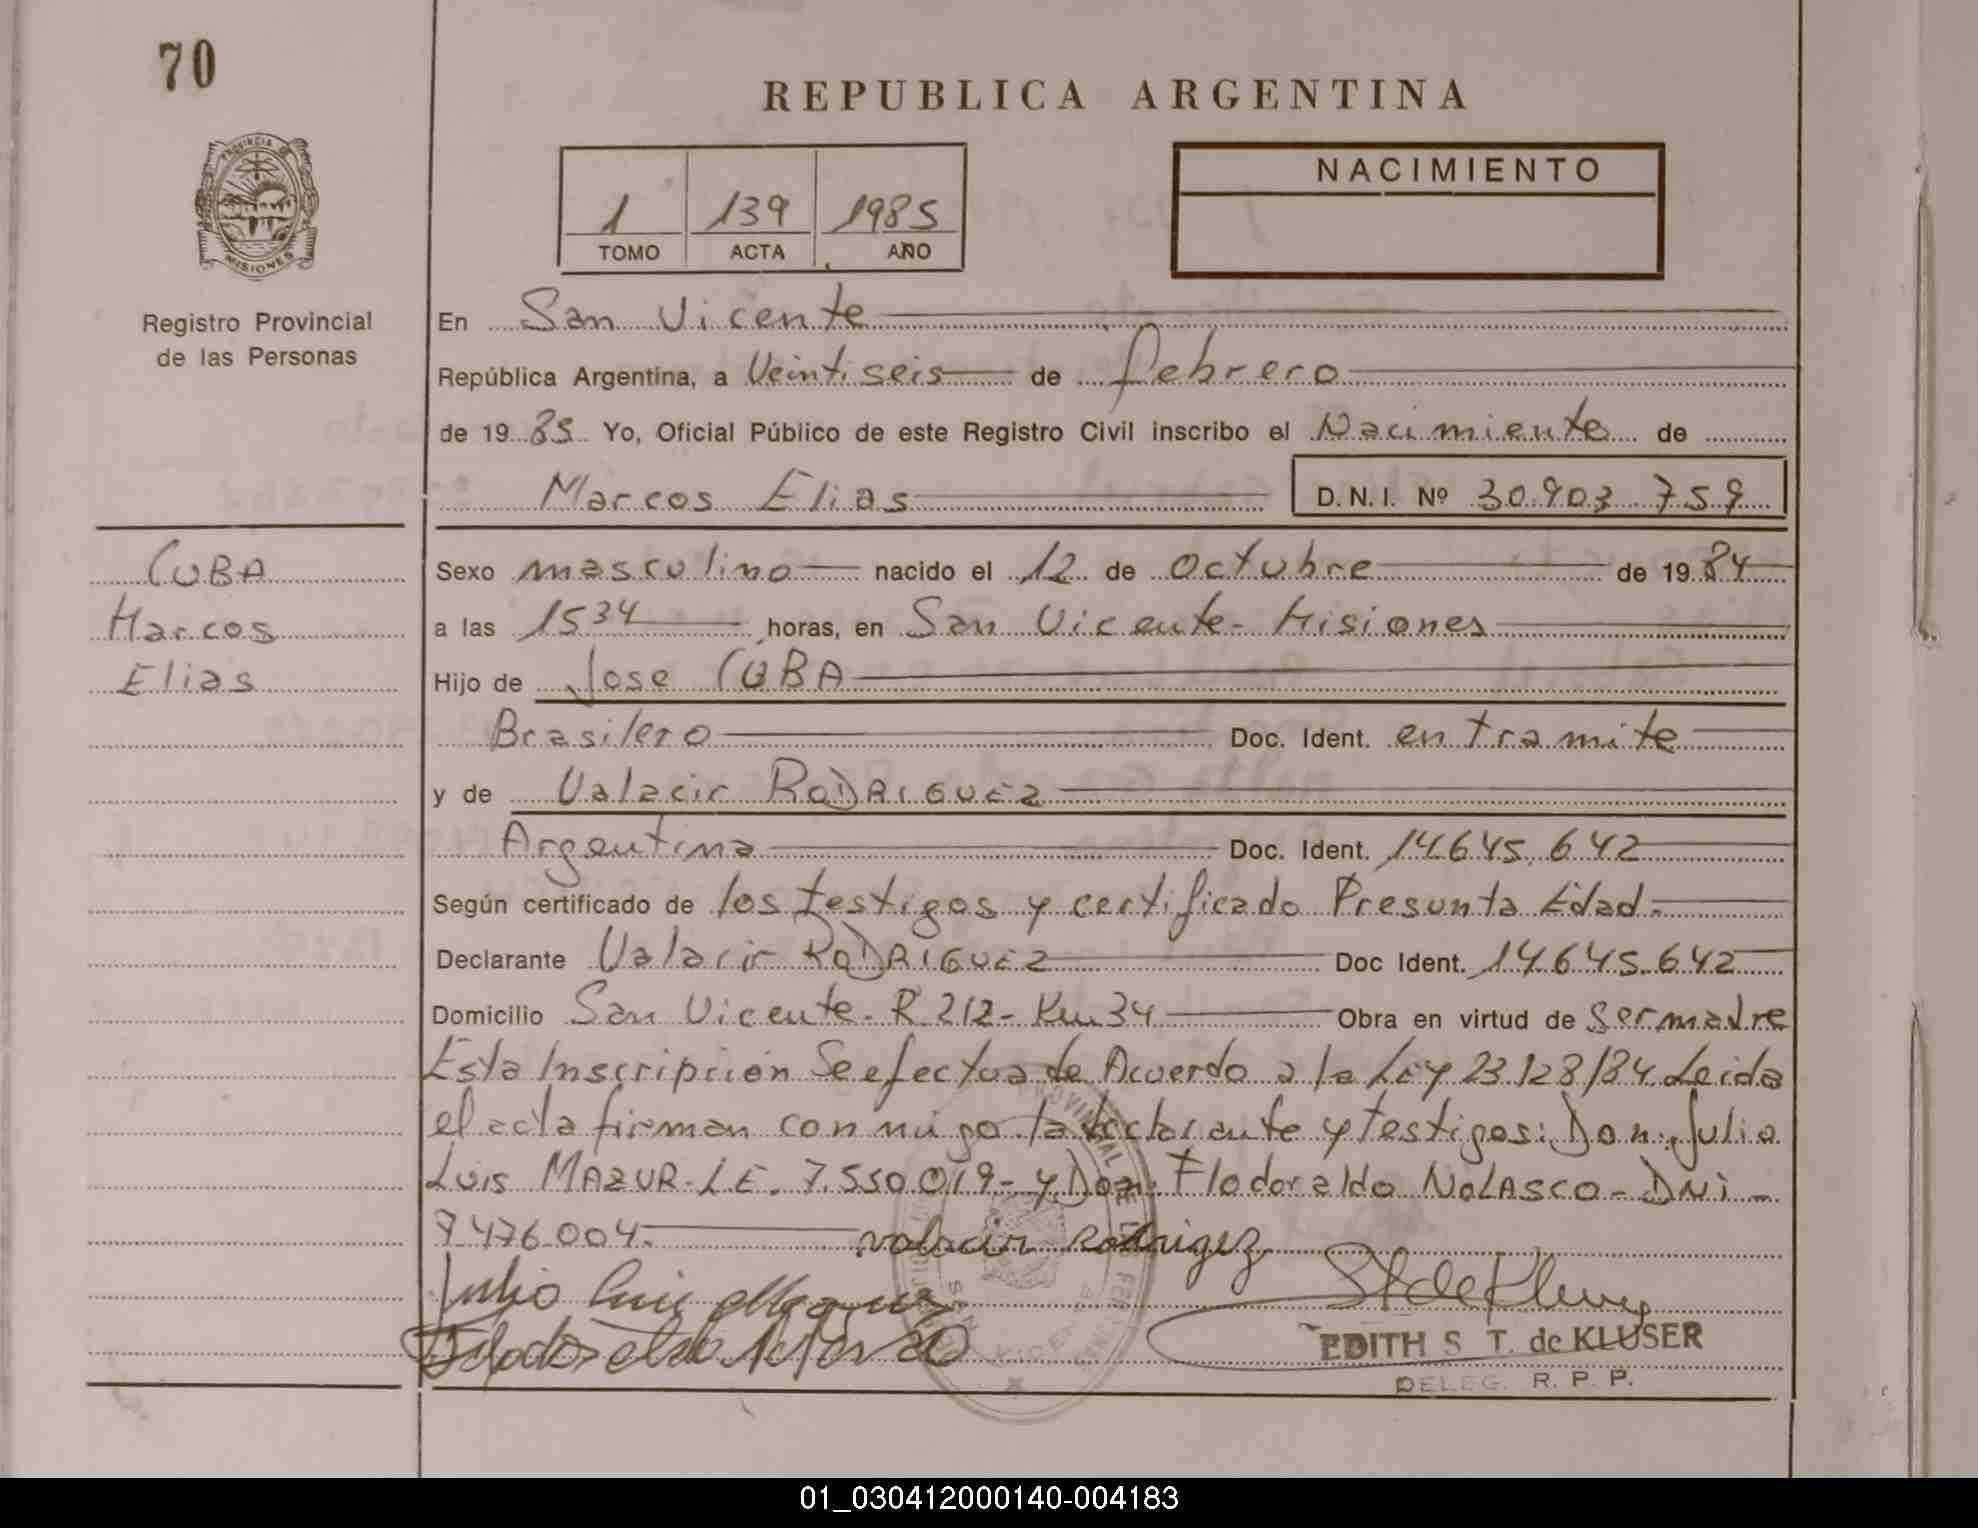 70
REPUBLICA ARGENTINA
PROVINCIA DE
MISIONES
Registro Provincial
de las Personas
1 139 1985
TOMO ACTA AÑO
NACIMIENTO
En San Vicente
República Argentina, a Veintiseis de febrero
de 19 85 Yo, Oficial Público de este Registro Civil inscribo el Nacimiento de
Marcos Elias D.N.I. Nº 30.903.759
CUBA
Marcos
Elias
Sexo masculino nacido el 12 de Octubre de 19 84
a las 15 34 horas, en San Vicente - Misiones
Hijo de Jose CUBA
Brasilero Doc. Ident. en tramite
y de Valacir RODRIGUEZ
Argentina Doc. Ident. 14.645.642
Según certificado de los testigos y certificado Presunta Edad.-
Declarante Valacir RODRIGUEZ Doc Ident. 14.645.642
Domicilio San Vicente - R 212 - Km 34 Obra en virtud de ser madre
Esta Inscripción Se efectua de Acuerdo a la Ley 23.128/84. Leida
el acta firman con migo la declarante y testigos: Don: Julio
Luis MAZUR - L E. 7.550.019 - y Don: Flodoraldo NOLASCO - DNi -
7 476.004.- valacir Rodrigez
Julio Luis
EDITH S T. de KLUSER
DELEG. R. P. P.
01_030412000140-004183